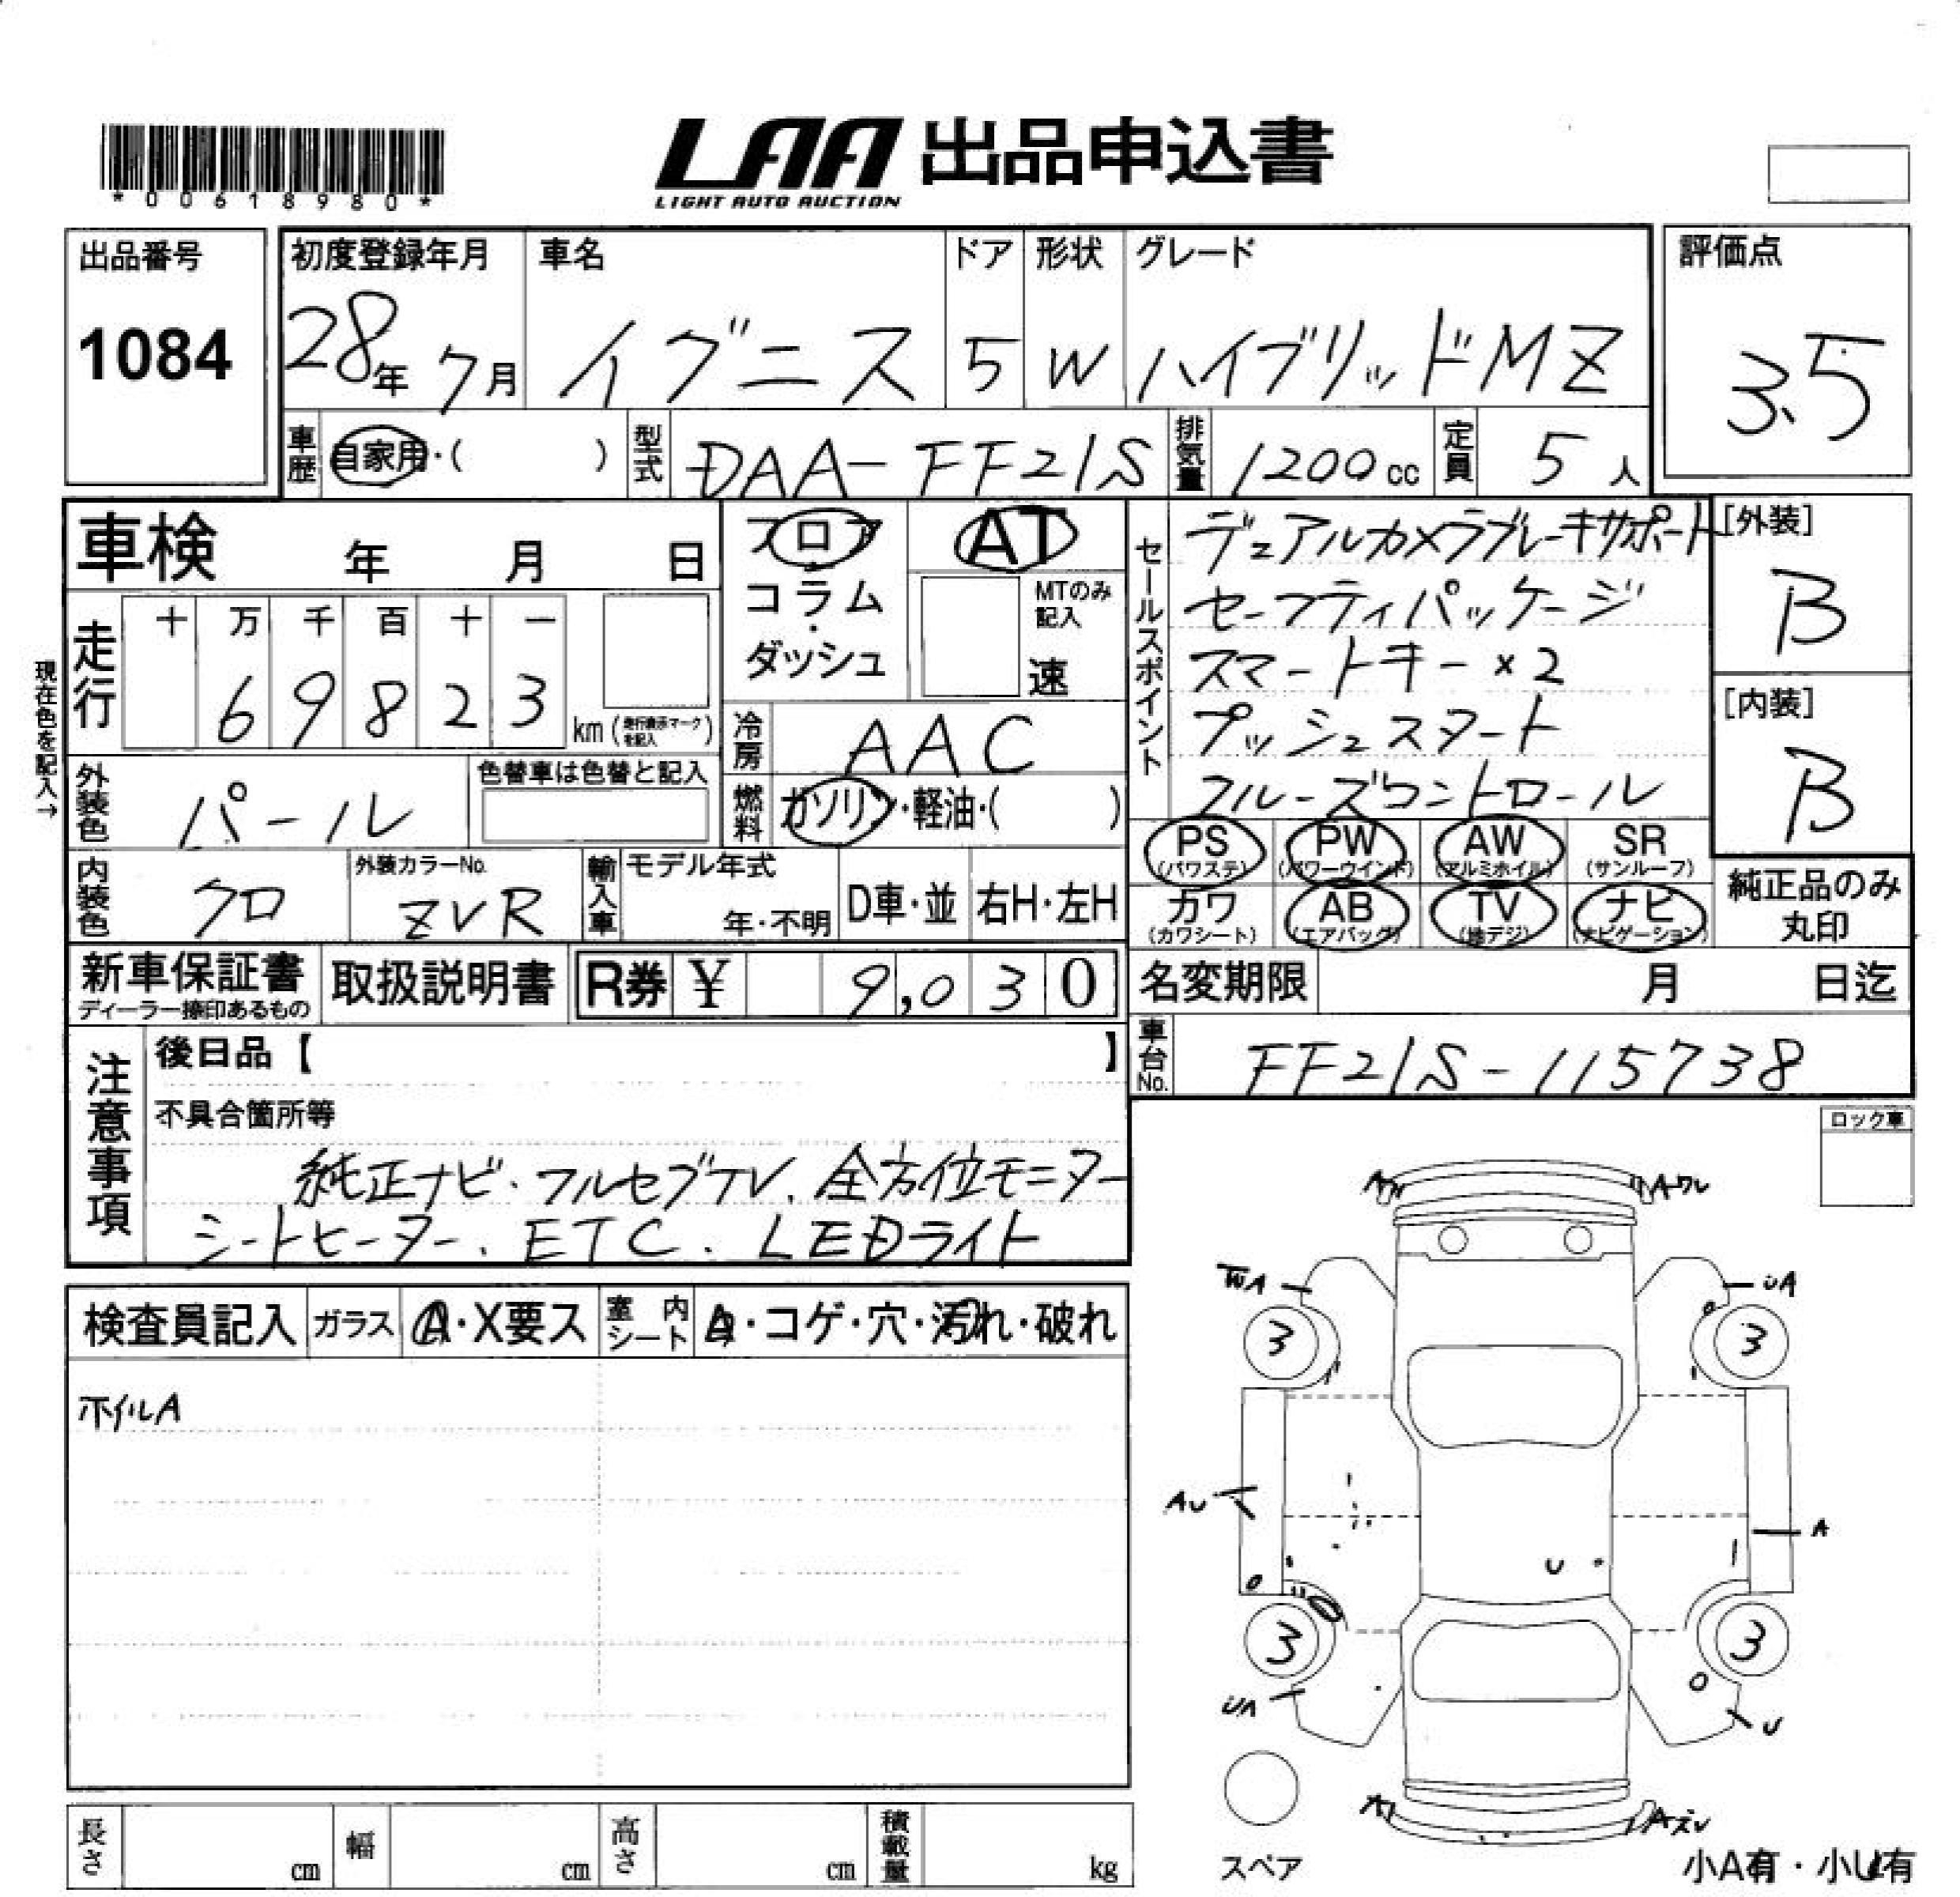 *00618980*
LAA 出品申込書
LIGHT AUTO AUCTION
出品番号
1084
初度登録年月
28年 7月
車名
イグニス
ドア
5
形状
W
グレード
ハイブリッドMZ
評価点
3.5
車歴
自家用・( )
型式
DAA-FF21S
排気量
1200cc
定員
5人
車検 年 月 日
フロア
コラム
・
ダッシュ
AT
MTのみ
記入
速
セールスポイント
デュアルカメラブレーキサポート
セーフティパッケージ
スマートキー×2
プッシュスタート
クルーズコントロール
[外装]
B
[内装]
B
現在色を記入→
走行
十 万 千 百 十 一
6 9 8 2 3
km(走行表示マークを記入)
冷房
AAC
外装色
パール
色替車は色替と記入
燃料
ガソリン・軽油・( )
PS
(パワステ)
PW
(パワーウインド)
AW
(アルミホイル)
SR
(サンルーフ)
カワ
(カワシート)
AB
(エアバッグ)
TV
(地デジ)
ナビ
(ナビゲーション)
純正品のみ
丸印
内装色
クロ
外装カラーNo.
ZVR
輸入車
モデル年式
年・不明
D車・並
右H・左H
新車保証書
ディーラー捺印あるもの
取扱説明書
R券 ¥ 9,030
名変期限 月 日迄
車台No.
FF21S-115738
注意事項
後日品【 】
不具合箇所等
純正ナビ・フルセグTV、全方位モニター
シートヒーター、ETC、LEDライト
ロック車
検査員記入
ガラス
A・X要ス
室内
シート
・コゲ・穴・汚れ・破れ
ホイルA
A
Aワレ
UA
3
3
AU
A
U
3
3
UA
U
A
スペア
小A有・小U有
長さ cm
幅 cm
高さ cm
積載量 kg